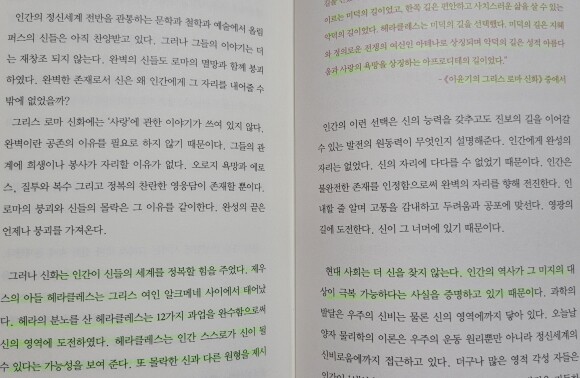 인간의 정신세계 전반을 관통하는 문학과 철학과 예술에서 올림
퍼스의 신들은 아직 찬양받고 있다. 그러나 그들의 이야기는 더
는 재창조 되지 않는다. 완벽의 신들도 로마의 멸망과 함께 붕괴
하였다. 완벽한 존재로서 신은 왜 인간에게 그 자리를 내어줄 수
밖에 없었을까?
그리스 로마 신화에는 '사랑'에 관한 이야기가 쓰여 있지 않다.
완벽이란 공존의 이유를 필요로 하지 않기 때문이다. 그들의 관
계에 희생이나 봉사가 자리할 이유가 없다. 오로지 욕망과 에로
스, 질투와 복수 그리고 정복의 찬란한 영웅담이 존재할 뿐이다.
로마의 붕괴와 신들의 몰락은 그 이유를 같이한다. 완성의 끝은
언제나 붕괴를 가져온다.
그러나 신화는 인간이 신들의 세계를 정복할 힘을 주었다. 제우
스의 아들 헤라클레스는 그리스 여인 알크메네 사이에서 태어났
다. 헤라의 분노를 산 헤라클레스는 12가지 과업을 완수함으로써
신의 영역에 도전하였다. 헤라클레스는 인간 스스로가 신이 될
수 있다는 가능성을 보여 준다. 또 몰락한 신과 다른 원형을 제시
길을
치르는 미덕의 길이었고, 한쪽 길은 편안하고 사치스러운 삶을 살 수 있는
악덕의 길이었다. 헤라클레스는 미덕의 길을 선택했다. 미덕의 길은 지혜
와 정의로운 전쟁의 여신인 아테나로 상징되며 악덕의 길은 성적 아름다
움과 사랑의 욕망을 상징하는 아프로디테의 길이었다."
- 《이윤기의 그리스 로마 신화》 중에서
인간의 이런 선택은 신의 능력을 갖추고도 진보의 길을 이어갈
수 있는 발전의 원동력이 무엇인지 설명해준다. 인간에게 완성의
자리는 없었다. 신의 자리에 다다를 수 없었기 때문이다. 인간은
불완전한 존재를 인정함으로써 완벽의 자리를 향해 전진한다. 인
내할 줄 알며 고통을 감내하고 두려움과 공포에 맞선다. 영광의
길에 도전한다. 신이 그 너머에 있기 때문이다.
현대 사회는 더 신을 찾지 않는다. 인간의 역사가 그 미지의 대
상이 극복 가능하다는 사실을 증명하고 있기 때문이다. 과학의
발달은 우주의 신비는 물론 신의 영역에까지 닿아 있다. 오늘날
양자 물리학의 이론은 우주의 운동 원리뿐만 아니라 정신세계의
신비로움에까지 접근하고 있다. 더구나 많은 영적 각성 자들은